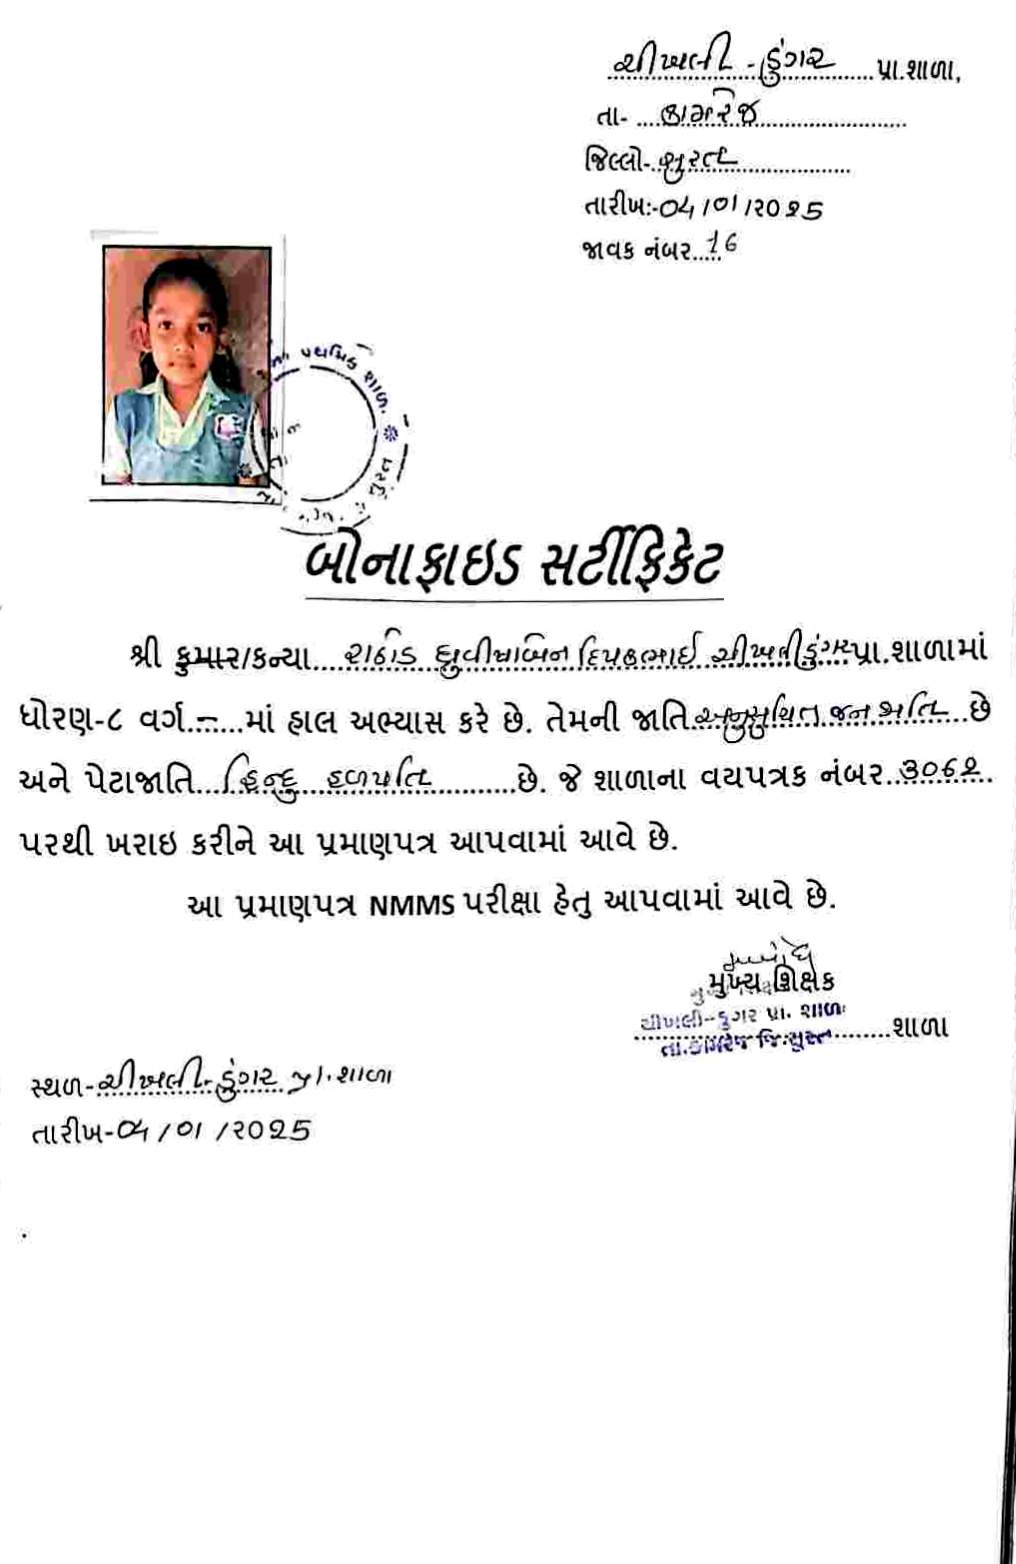 ચીખલી - ડુંગર પ્રા.શાળા,
તા- કામરેજ
જિલ્લો- સુરત
તારીખ:- 04/01/2025
જાવક નંબર. 16
પ્રાથમિક શાળા.
સુરત
બોનાફાઇડ સર્ટીફિકેટ
શ્રી કુમાર/કન્યા રાઠોડ ધ્રુવીષાબેન દિપકભાઈ ચીખલી ડુંગર પ્રા.શાળામાં
ધોરણ-૮ વર્ગ - માં હાલ અભ્યાસ કરે છે. તેમની જાતિ અનુસુચિત જનજાતિ છે
અને પેટાજાતિ હિન્દુ હળપતિ છે. જે શાળાના વયપત્રક નંબર ૩૦૬૨
પરથી ખરાઇ કરીને આ પ્રમાણપત્ર આપવામાં આવે છે.
આ પ્રમાણપત્ર NMMS પરીક્ષા હેતુ આપવામાં આવે છે.
મુખ્ય શિક્ષક
ચીખલી-ડુંગર પ્રા. શાળા
શાળા
તા.કામરેજ જિ.સુરત
સ્થળ- ચીખલી- ડુંગર પ્રા. શાળા
તારીખ- 04/01/2025